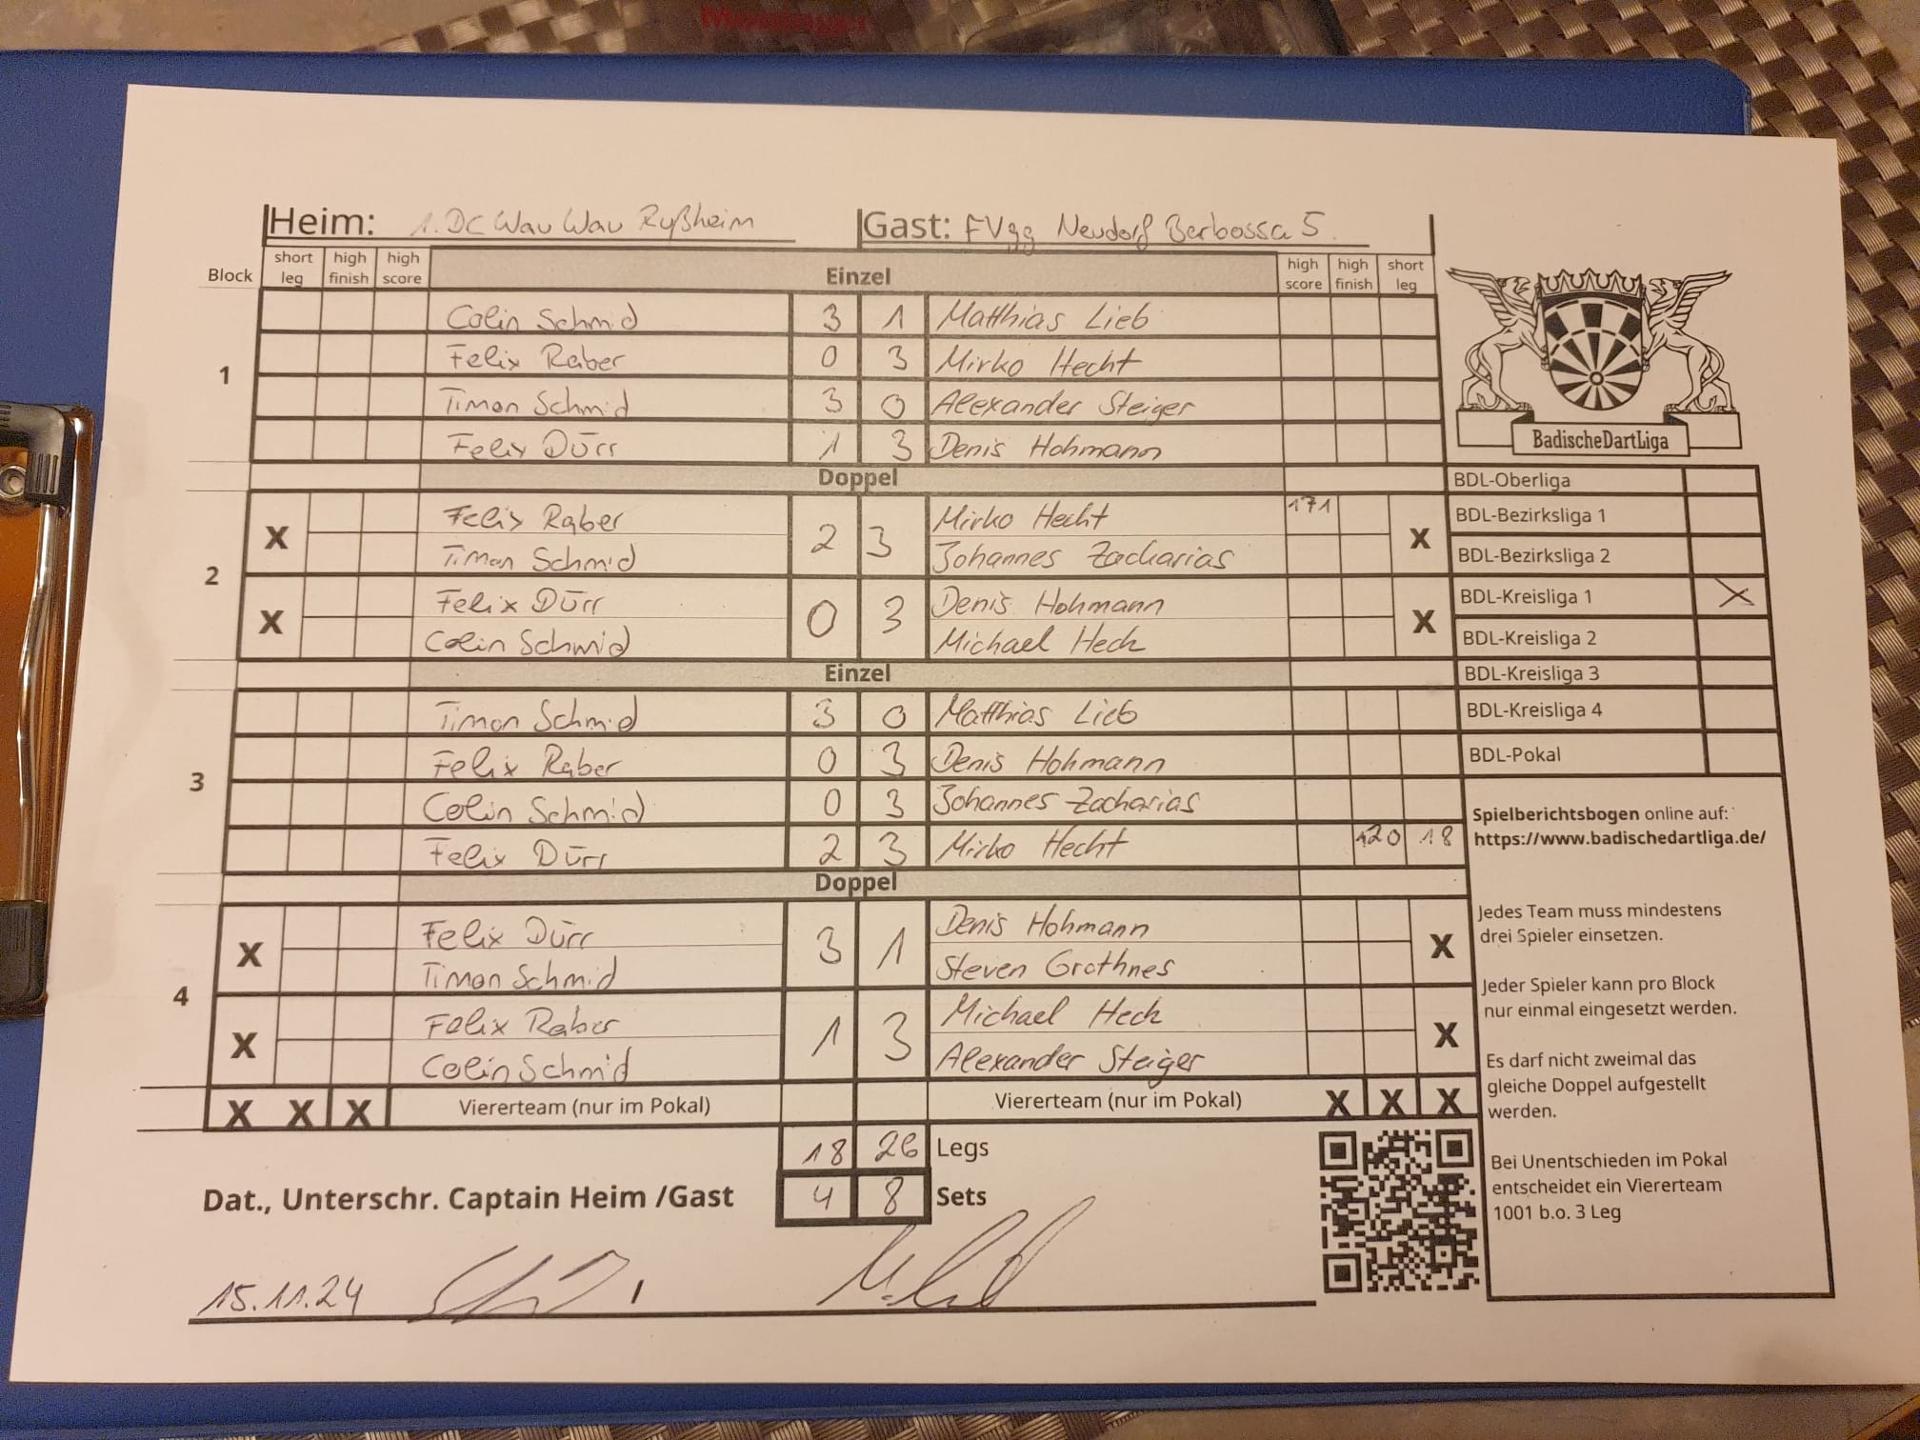 Heim: 1. DC Wau Wau Rußheim Gast: FVgg Neudorf Barbossa 5
Block short leg high finish high score Einzel high score high finish short leg
1
Colin Schmid 3 1 Matthias Lieb
Felix Raber 0 3 Mirko Hecht
Timon Schmid 3 0 Alexander Steiger
Felix Dürr 1 3 Denis Hohmann
Doppel
2
X Felix Raber 2 3 Mirko Hecht 171 X
Timon Schmid Johannes Zacharias
X Felix Dürr 0 3 Denis Hohmann X
Colin Schmid Michael Heck
Einzel
3
Timon Schmid 3 0 Matthias Lieb
Felix Raber 0 3 Denis Hohmann
Colin Schmid 0 3 Johannes Zacharias
Felix Dürr 2 3 Mirko Hecht 120 18
Doppel
4
X Felix Dürr 3 1 Denis Hohmann X
Timon Schmid Steven Grothnes
X Felix Raber 1 3 Michael Heck X
Colin Schmid Alexander Steiger
X X X Viererteam (nur im Pokal) Viererteam (nur im Pokal) X X X
18 26 Legs
Dat., Unterschr. Captain Heim /Gast 4 8 Sets
15.11.24
BadischeDartLiga
BDL-Oberliga
BDL-Bezirksliga 1
BDL-Bezirksliga 2
BDL-Kreisliga 1 X
BDL-Kreisliga 2
BDL-Kreisliga 3
BDL-Kreisliga 4
BDL-Pokal
Spielberichtsbogen online auf:
https://www.badischedartliga.de/
Jedes Team muss mindestens
drei Spieler einsetzen.
Jeder Spieler kann pro Block
nur einmal eingesetzt werden.
Es darf nicht zweimal das
gleiche Doppel aufgestellt
werden.
Bei Unentschieden im Pokal
entscheidet ein Viererteam
1001 b.o. 3 Leg